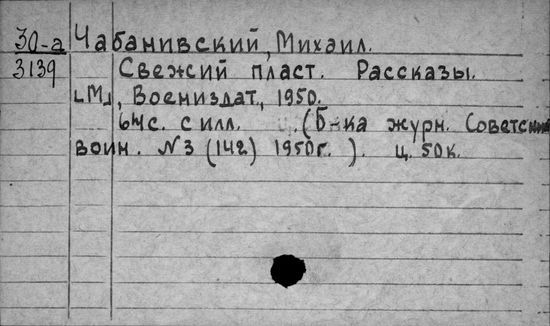 30-а Чабанивский, Михаил.
3139 Свежсий пласт. Рассказы.
[М], Воениздат, 1950.
64с. с илл. (Б-ка журн. Советский
воин. №3 (142) 1950г. ). ц. 50к.